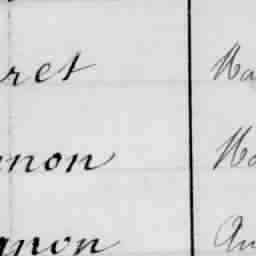 ret Ma
nnon Ma
gnon Au